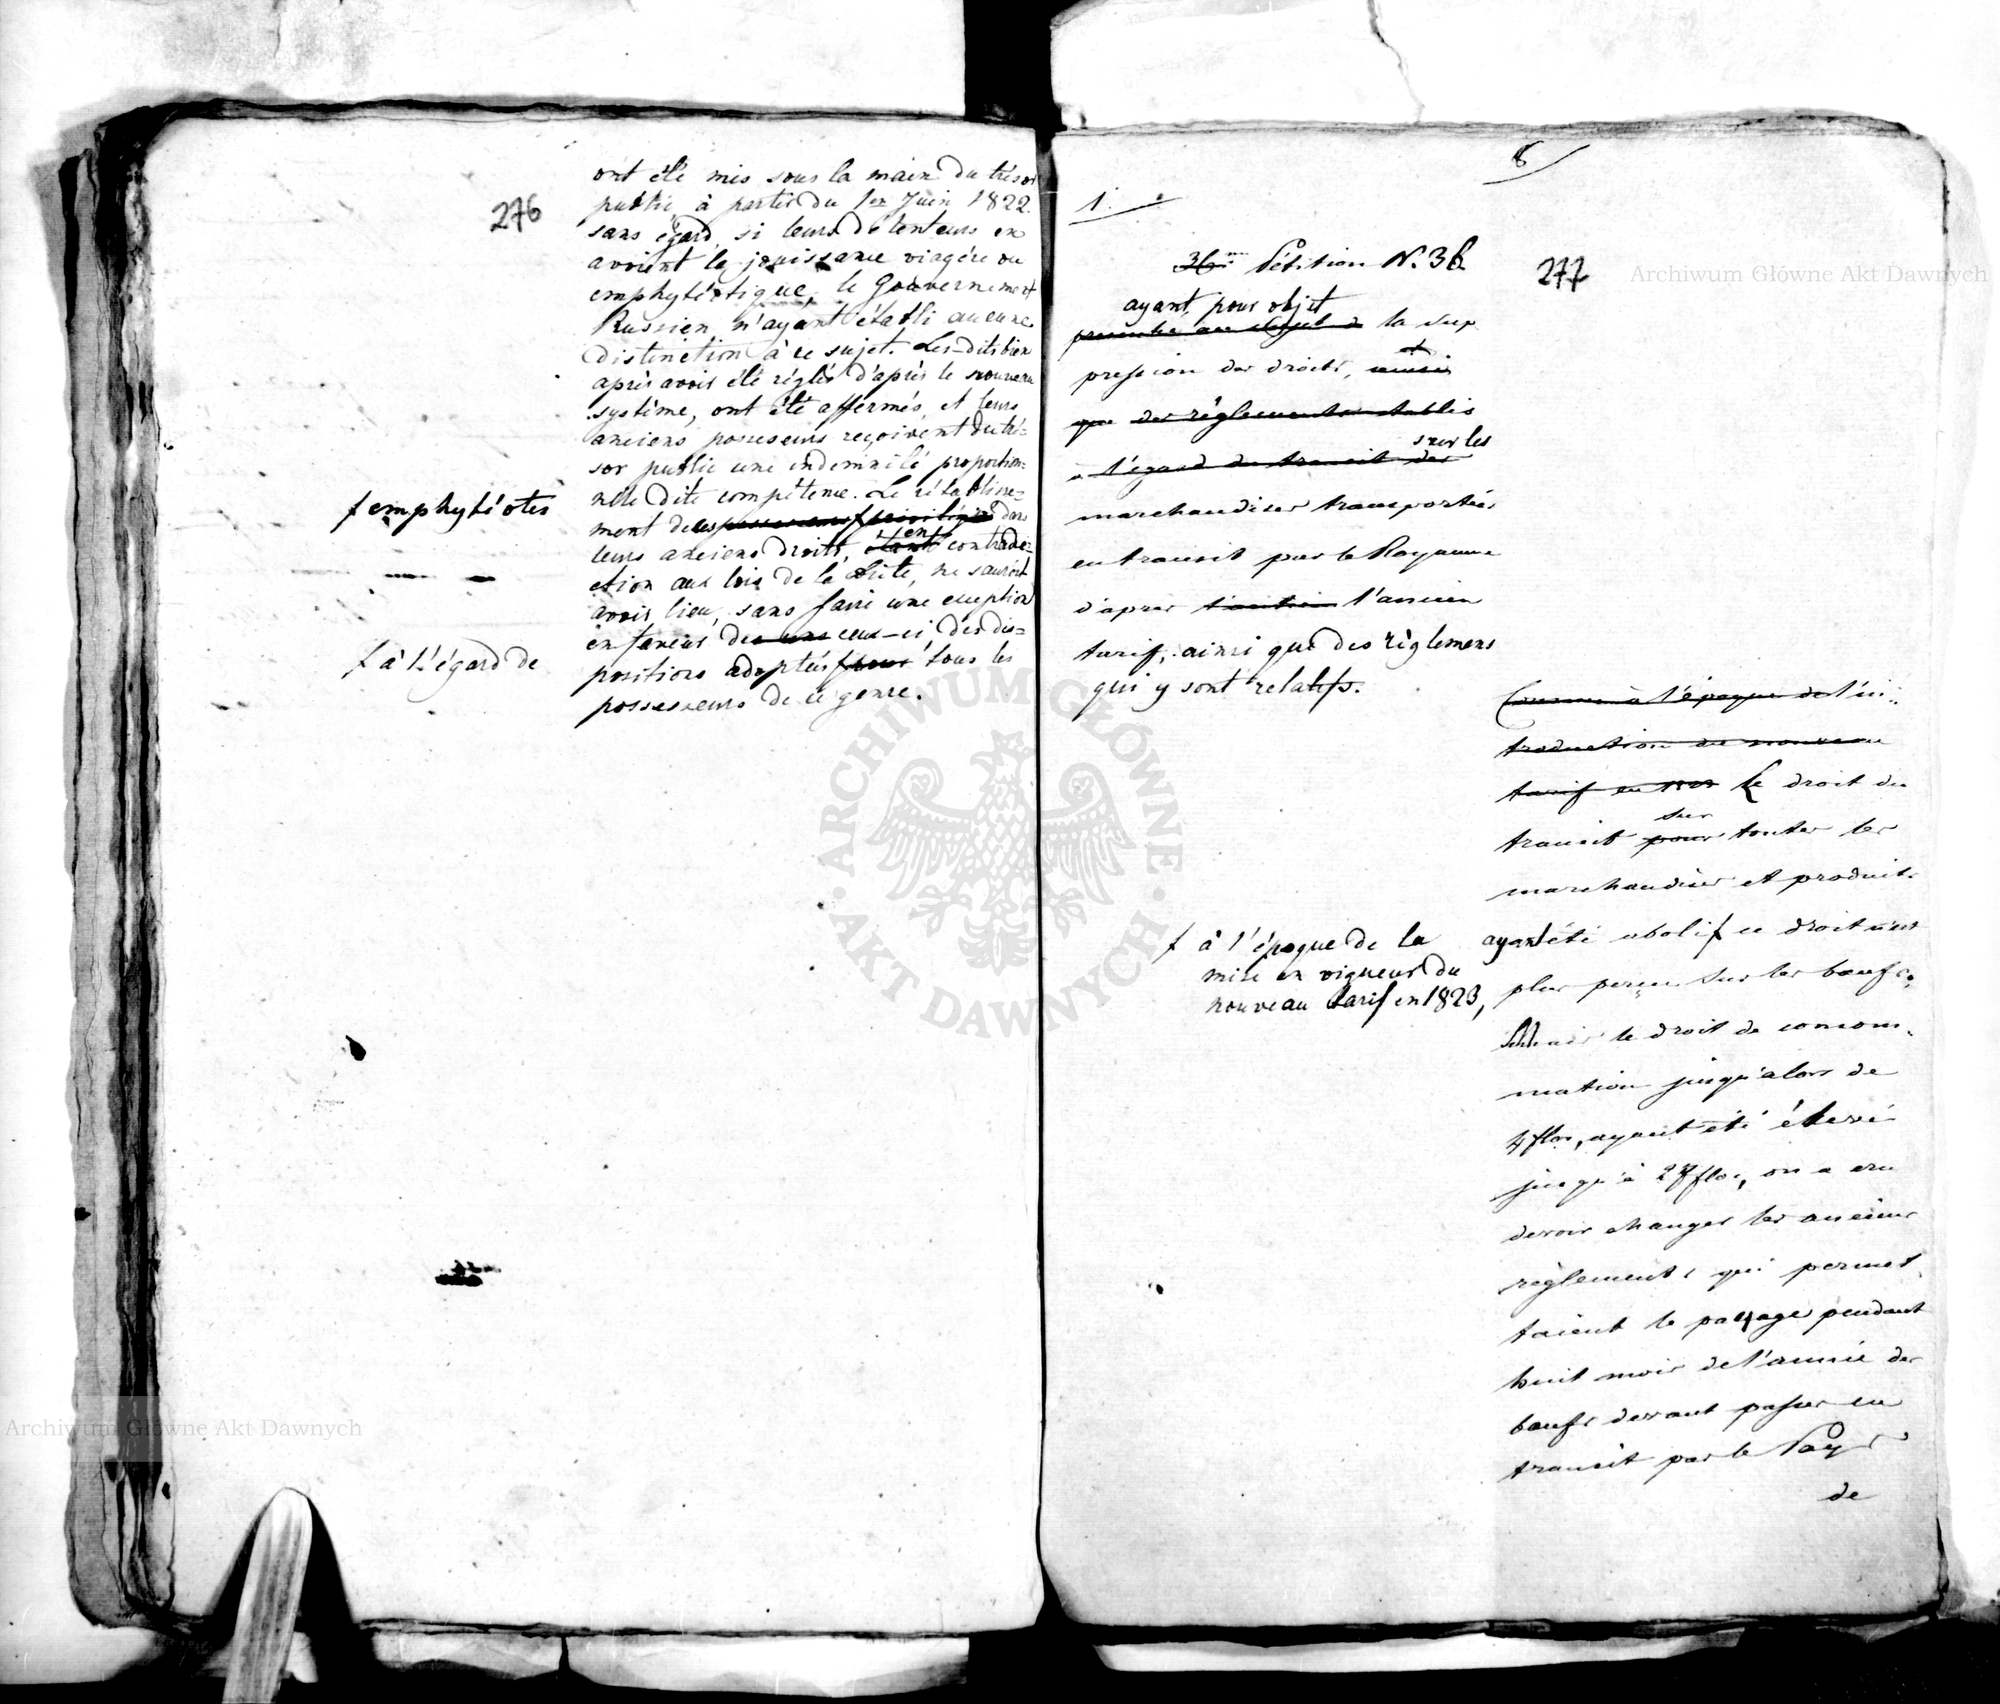 276
ont été mis sous la main du trésor
public à partir du 1er Juin 1822.
sans égard, si leurs détenteurs en
avoient la jouissance viagère ou
emphytéotique, le Gouvernement
Russien n'ayant établi aucune
distinction à ce sujet. Les-dits bien
après avoir été réglés d'après le nouveau
système, ont été affermés, et leurs
anciens possesseurs reçoivent du tré=
sor public une indemnité proportion=
nelle dite compétence. Le rétablisse=
ment de ces possesseurs privilégiés dans
f emphytéotes
leurs anciens droits, étant en contradi=
ction aux lois de la Diète, ne sauroit
avoir lieu, sans faire une exception
en faveur de ceux-ci, des dis=
positions adoptées f pour tous les
f à l'égard de
possesseurs de ce genre.
8
1.
277
36me Pétition N. 36
ayant pour objet
présentée au sujet de la sup
pression des droits, ainsi
que des règlements établis
à l'égard du transit des
sur les
marchandises transportées
en transit par le Royaume
d'après l'ancien
tarif, ainsi que des règlemens
qui y sont relatifs.
Comme à l'époque de l'in:
troduction du nouveau
tarif en 1823 Le droit du
sur
transit pour toutes les
marchandises et produits
ayant été aboli f ce droit n'est
f à l'époque de la
mise en vigueur du
nouveau tarif en 1823,
plus perçu sur les bœufs.
Mais le droit de consom.
mation jusqu'alors de
4 flor, ayant été élevé
jusqu'à 27 flor, on a cru
devoir changer les anciens
règlements qui permet.
taient le passage pendant
huit mois de l'année des
bœufs devant passer en
transit par le Pays
de
Archiwum Główne Akt Dawnych
Archiwum Główne Akt Dawnych
ARCHIWUM GŁÓWNE · AKT DAWNYCH ·